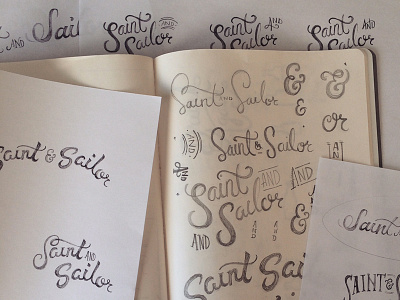 AND Sai
Saint AND
Sailor
Saint AND
Sailor
Saint AND
Sailor
Saint AND Sailor
&
&
&
or
AND
Saint & Sailor
AND
Saint AND
Sailor
AND
AND
AND
AND
&
Saint
Saint & Sailor
Saint AND
Sailor
Saint
SAINT &